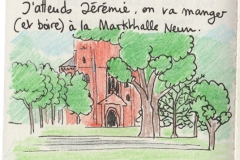 J'attends Jérémie, on va manger
(et boire) à la Markthalle Neun.